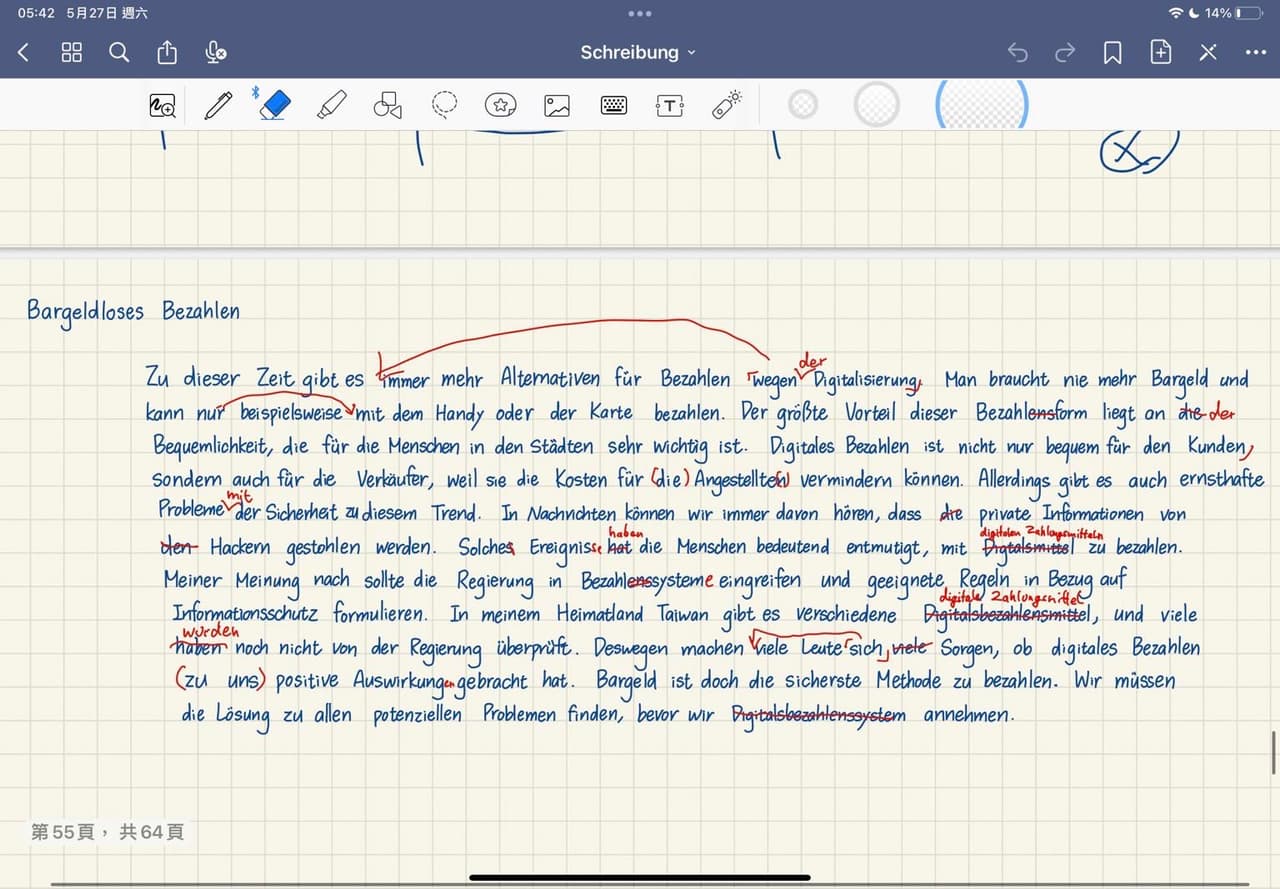 05:42 5月27日 週六
14%
Schreibung
Bargeldloses Bezahlen
der
Zu dieser Zeit gibt es immer mehr Alternativen für Bezahlen wegen Digitalisierung. Man braucht nie mehr Bargeld und
kann nur beispielsweise mit dem Handy oder der Karte bezahlen. Der größte Vorteil dieser Bezahlensform liegt an die der
Bequemlichkeit, die für die Menschen in den Städten sehr wichtig ist. Digitales Bezahlen ist nicht nur bequem für den Kunden,
sondern auch für die Verkäufer, weil sie die Kosten für (die) Angestellte(n) vermindern können. Allerdings gibt es auch ernsthafte
mit
Probleme der Sicherheit zu diesem Trend. In Nachrichten können wir immer davon hören, dass die private Informationen von
haben digitalen Zahlungsmitteln
den Hackern gestohlen werden. Solches Ereignisse hat die Menschen bedeutend entmutigt, mit Digtalsmittel zu bezahlen.
Meiner Meinung nach sollte die Regierung in Bezahlenssysteme eingreifen und geeignete Regeln in Bezug auf
digitale Zahlungsmittel
Informationsschutz formulieren. In meinem Heimatland Taiwan gibt es verschiedene Digitalsbezahlensmittel, und viele
wurden
haben noch nicht von der Regierung überprüft. Deswegen machen viele Leute sich, viele Sorgen, ob digitales Bezahlen
(zu uns) positive Auswirkungen gebracht hat. Bargeld ist doch die sicherste Methode zu bezahlen. Wir müssen
die Lösung zu allen potenziellen Problemen finden, bevor wir Digitalsbezahlenssystem annehmen.
第55頁，共64頁